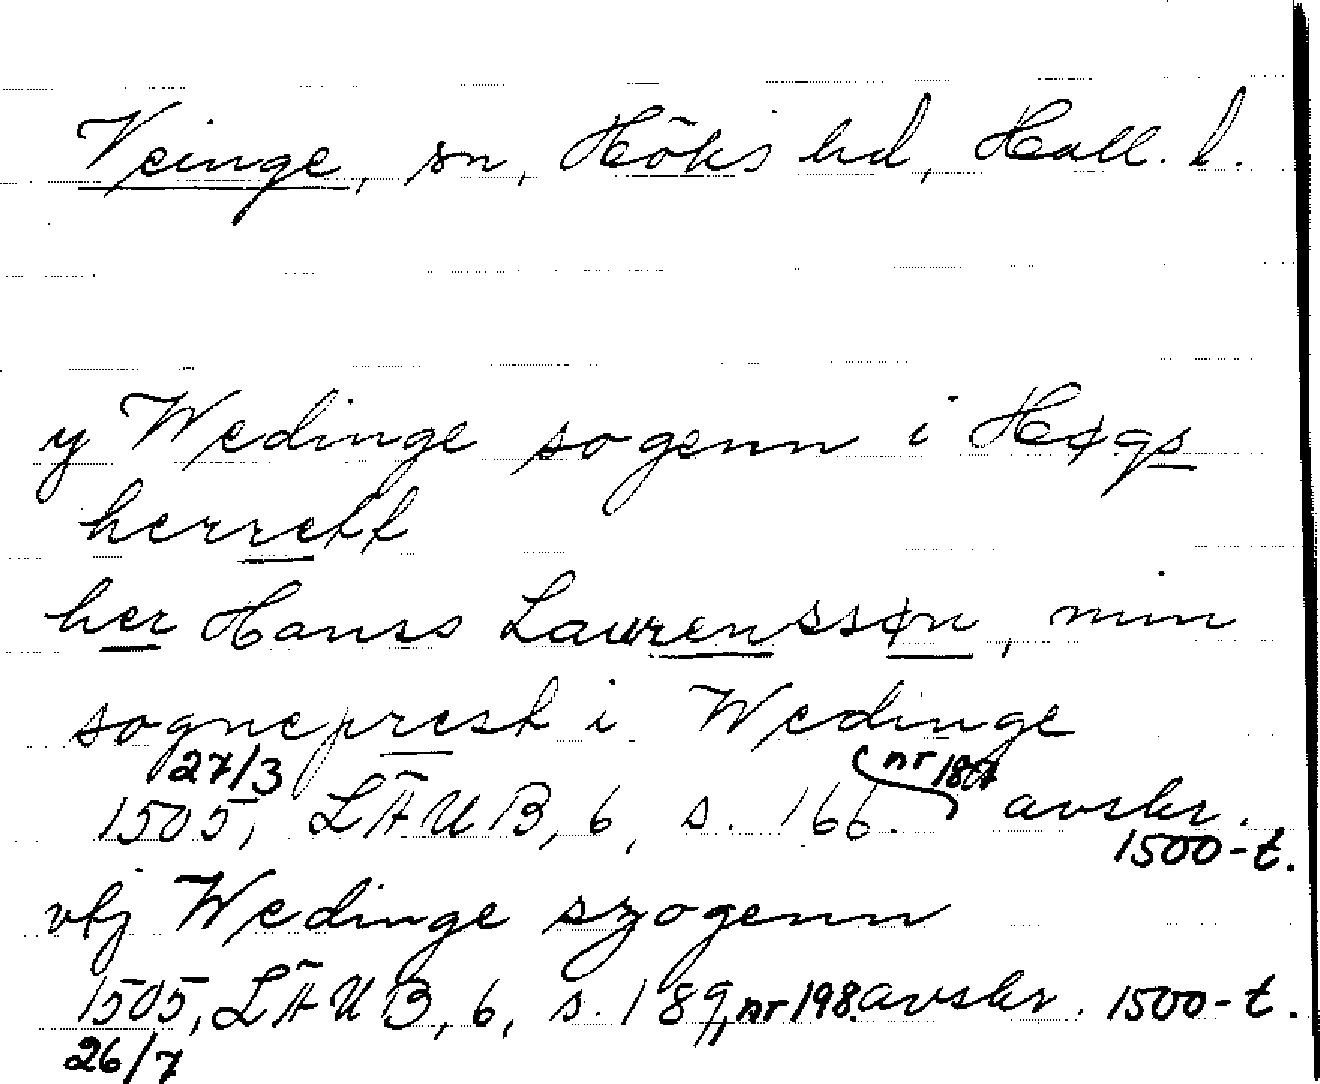 Veinge, sn, Höks hd, Hall. l.
y Wedinge sogenn i Høgs
herrett
her Hanss Laurenssøn, min
sogneprest i Wedinge
27/3 nr
1505, LÄUB, 6, s. 166. avskr.
1500-t.
vtj Wedinge szogenn
1505, LÄUB, 6, s. 189, nr 198. avskr. 1500-t.
26/7